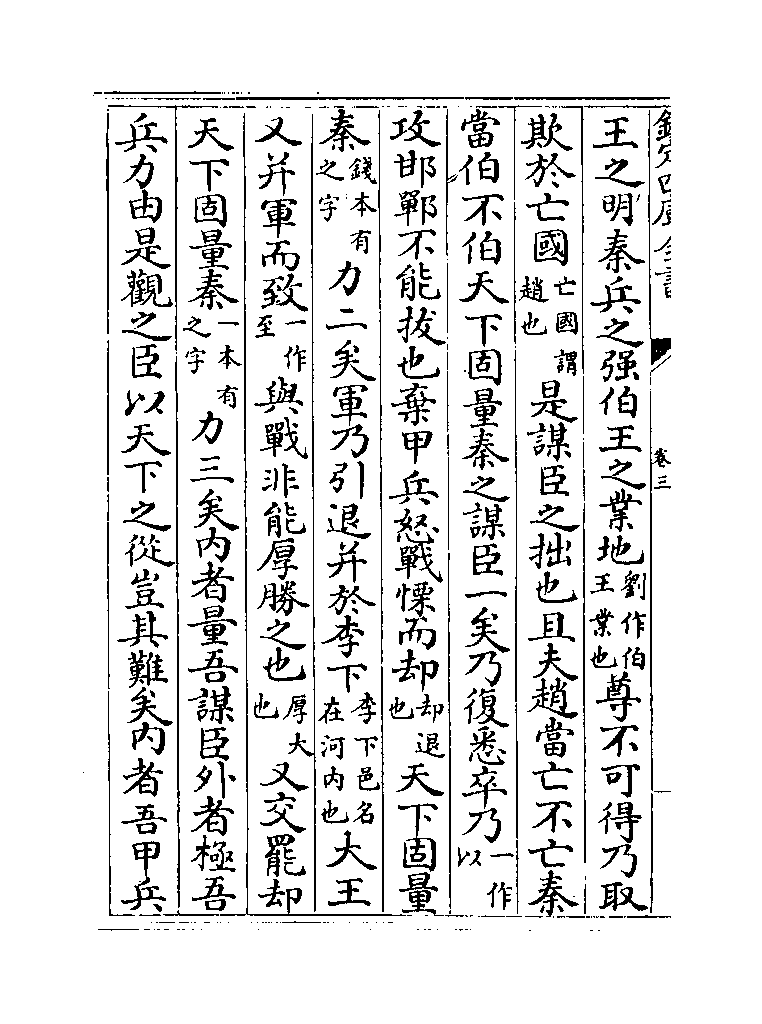 欽定四庫全書 卷三
王之明秦兵之强伯王之業地劉作伯王業也尊不可得乃取
欺於亡國亡國謂趙也是謀臣之拙也且夫趙當亡不亡秦
當伯不伯天下固量秦之謀臣一矣乃復悉卒乃一作以
攻邯鄲不能拔也棄甲兵怒戰慄而却却退也天下固量
秦錢本有之字力二矣軍乃引退并於李下李下邑名在河内也大王
又并軍而致一作至與戰非能厚勝之也厚大也又交罷却
天下固量秦一本有之字力三矣内者量吾謀臣外者極吾
兵力由是觀之臣以天下之從豈其難矣内者吾甲兵